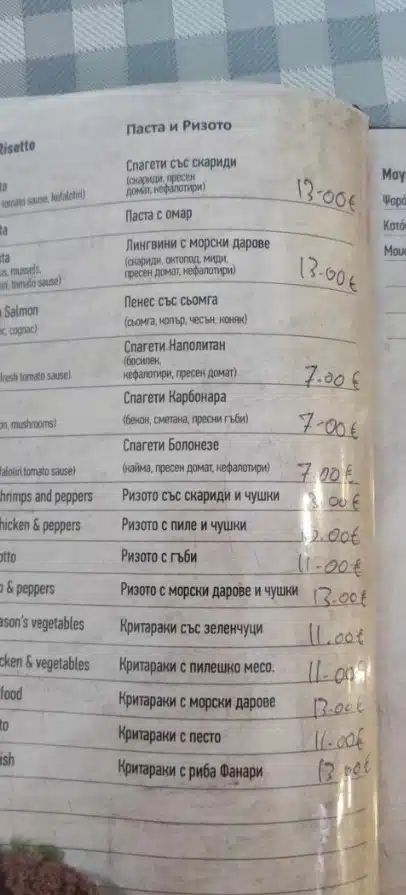 Risotto
Паста и Ризото
Спагети със скариди
(скариди, пресен
домат, кефалотири)
13-00€
tomato sause, kefalotiri)
Паста с омар
Лингвини с морски дарове
(скариди, октопод, миди,
пресен домат, кефалотири)
13-00€
mussels,
tomato sause)
Salmon
Пенес със сьомга
cognac)
(сьомга, копър, чесън, коняк)
Спагети Наполитан
(босилек,
fresh tomato sause)
кефалотири, пресен домат)
7.00€
Спагети Карбонара
mushrooms)
(бекон, сметана, пресни гъби)
7-00€
Спагети Болонезе
tomato sause)
(кайма, пресен домат, кефалотири)
7.00€
hrimps and peppers Ризото със скариди и чушки
hicken & peppers Ризото с пиле и чушки
Ризото с гъби 11-00€
& peppers Ризото с морски дарове и чушки 13.00€
ason's vegetables Критараки със зеленчуци 11.00€
cken & vegetables Критараки с пилешко месо. 11-00€
food Критараки с морски дарове 13.00€
Критараки с песто 11-00€
ish Критараки с риба Фанари 13.00€